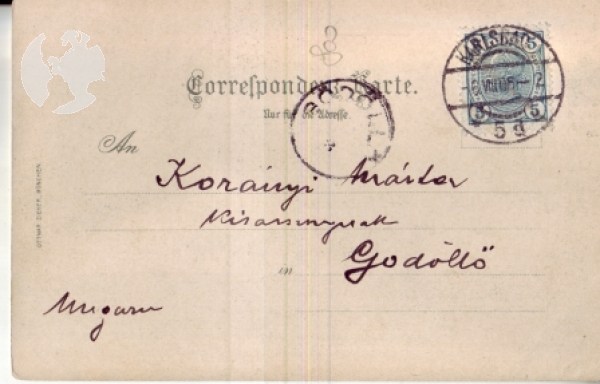 KARLSBAD
5 d
Correspondenz-Karte.
Nur für die Adresse.
An
Korányi Márta
Kisasszonynak
in Gödöllő
Ungarn
OTTMAR ZIEHER, MÜNCHEN